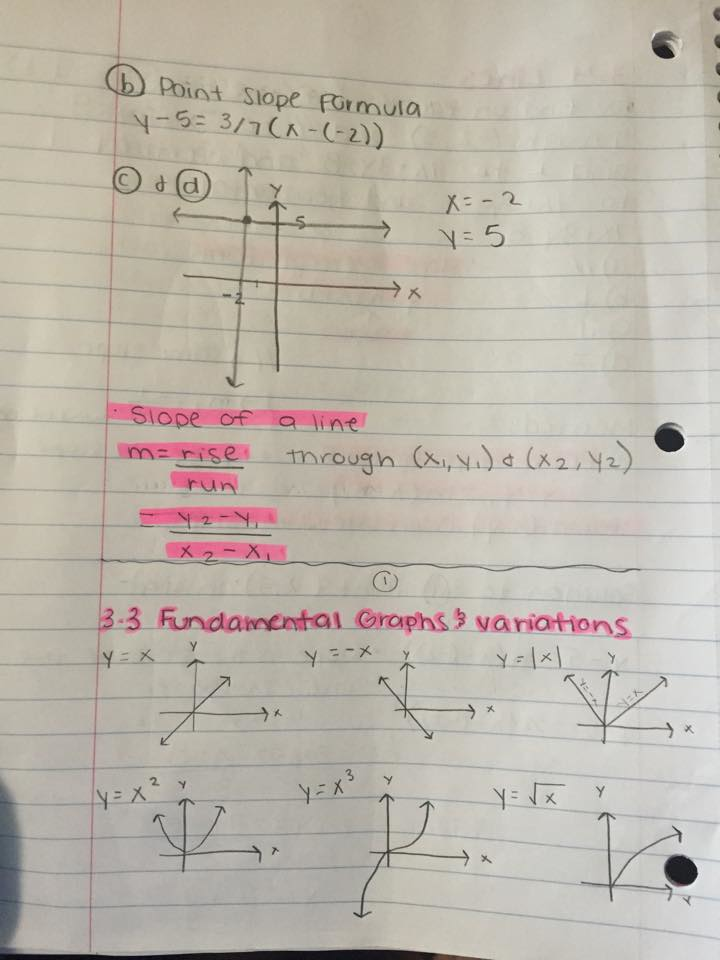 ⓑ Point Slope Formula
y-5=3/7(x-(-2))
ⓒ & ⓓ
y
5
x
-2
x=-2
y=5
· Slope of a line
m= rise through (x₁,y₁) & (x₂,y₂)
run
= y₂-y₁
x₂-x₁
①
3-3 Fundamental Graphs & variations
y=x y x y=-x y x y=|x| y y=-x y=x x
y=x² y x y=x³ y x y=√x y